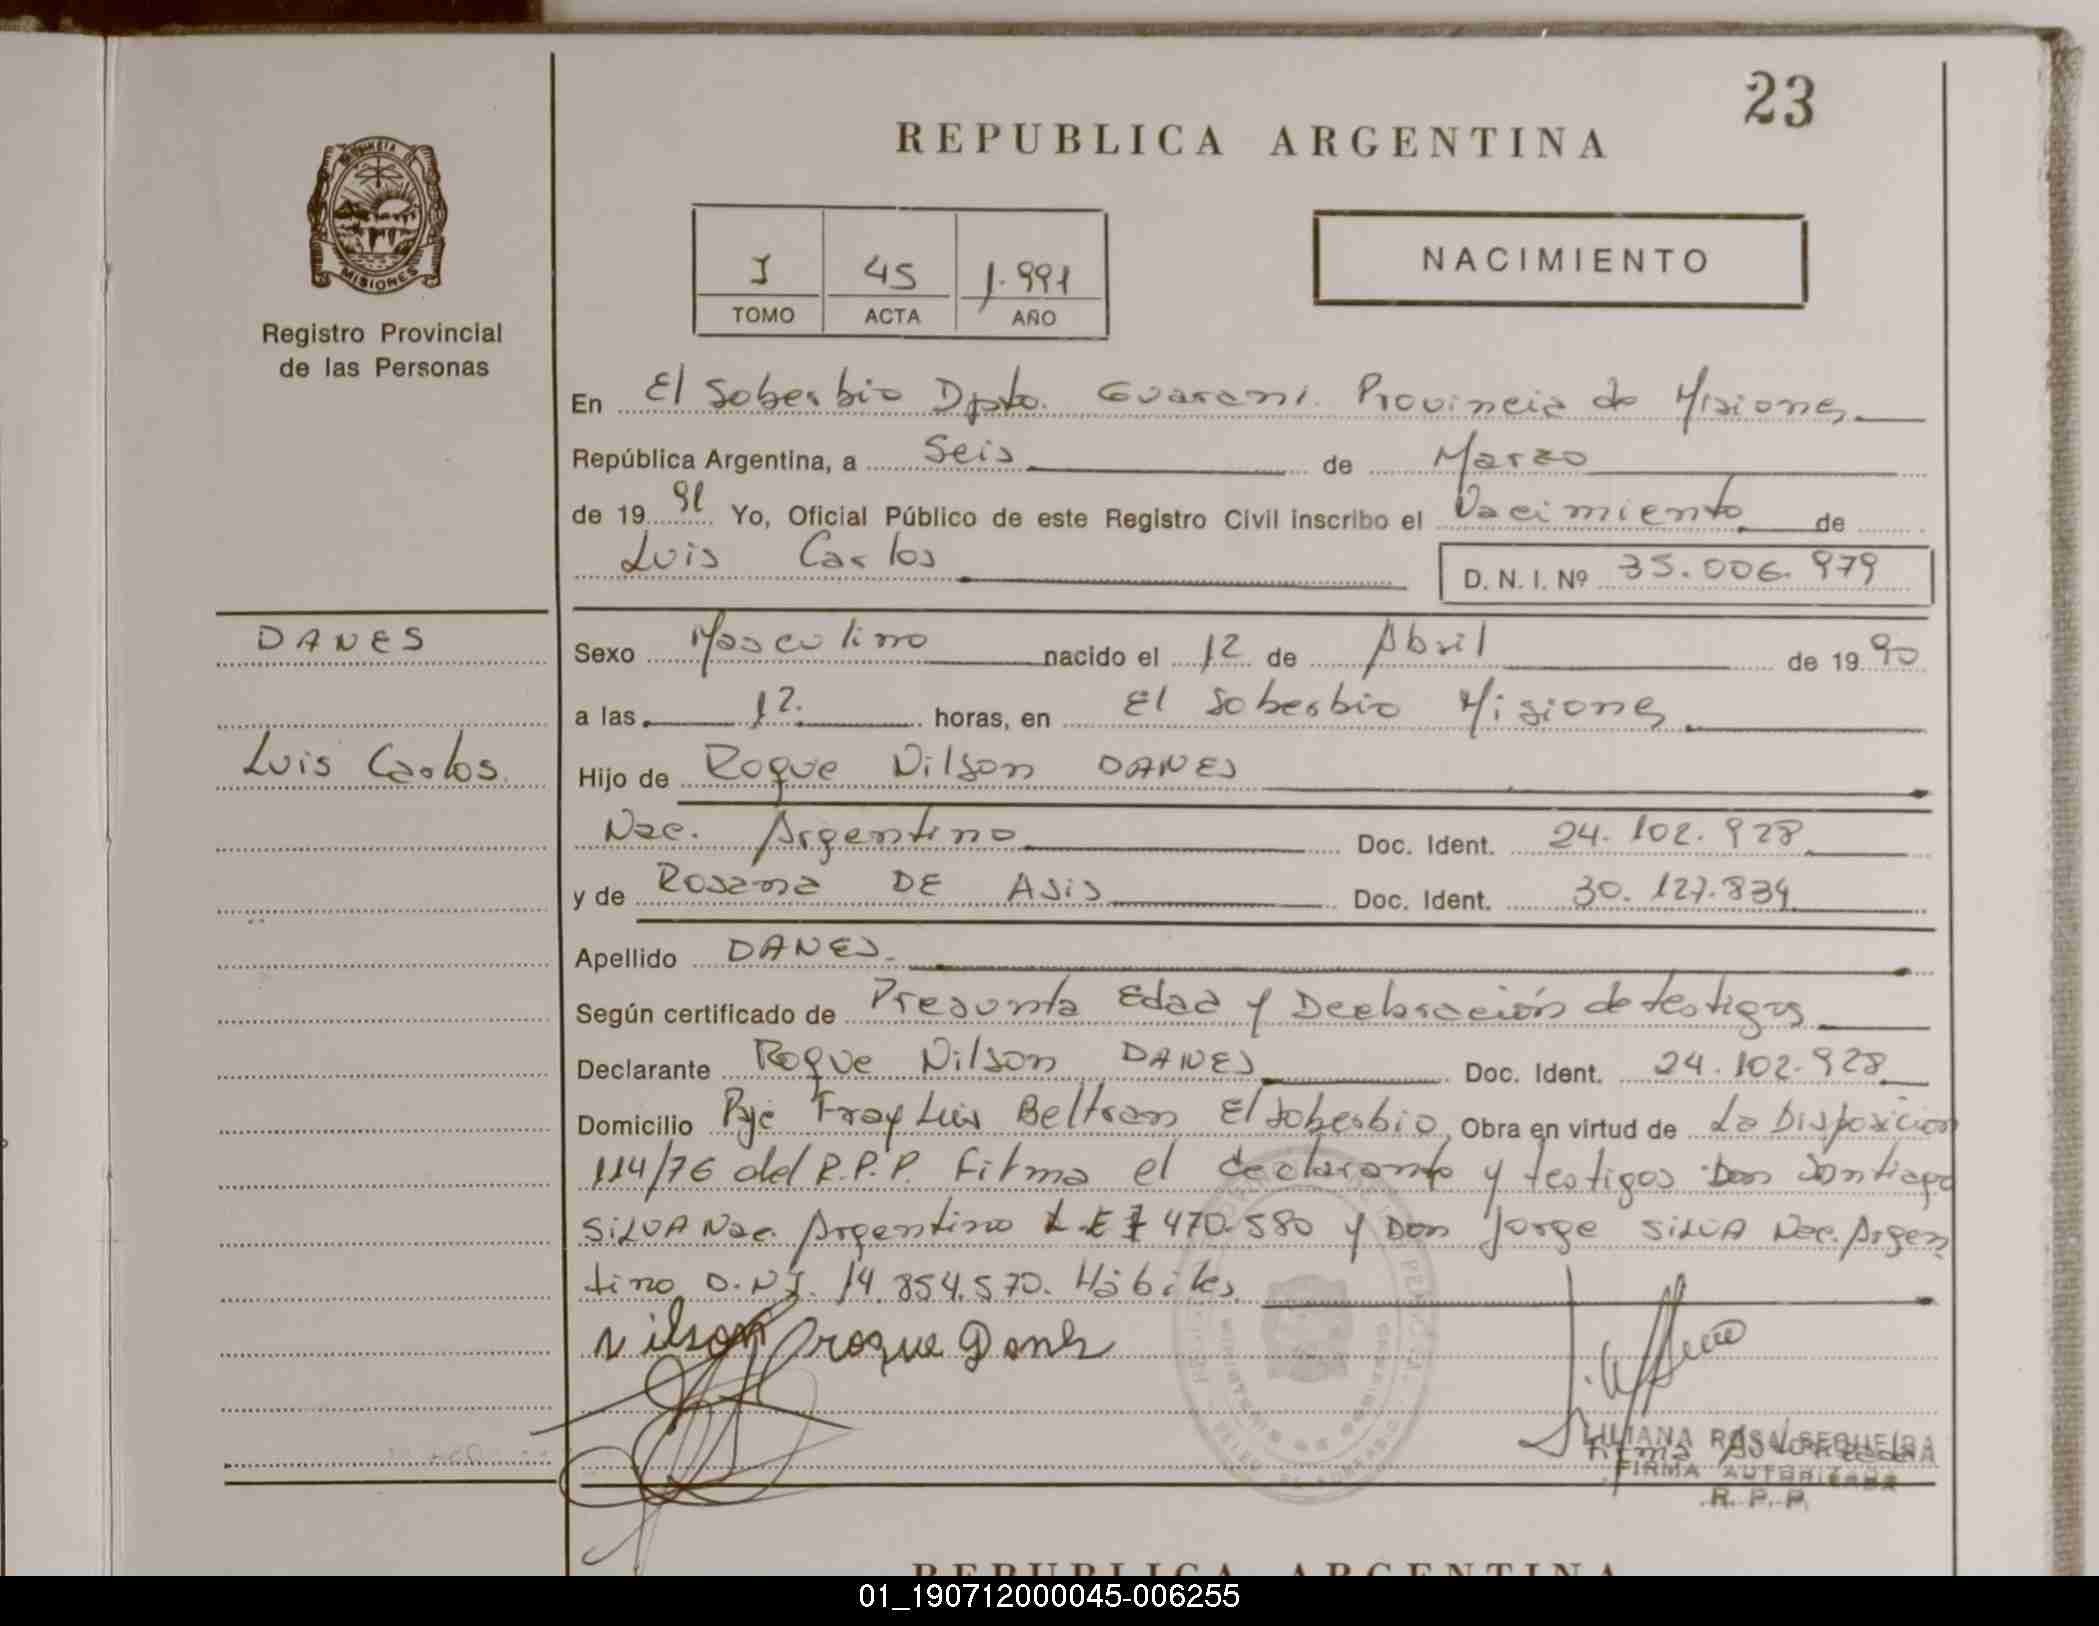 23
REPUBLICA ARGENTINA
PROVINCIA
MISIONES
Registro Provincial
de las Personas
I 45 1.991
TOMO ACTA AÑO
NACIMIENTO
En El Soberbio Dpto. Guarani. Provincia de Misiones
República Argentina, a Seis de Marzo
de 1991 Yo, Oficial Público de este Registro Civil inscribo el Nacimiento de
Luis Carlos
D. N. I. Nº 35.006.979
DANES
Luis Carlos
Sexo Masculino nacido el 12 de Abril de 1990
a las 12. horas, en El Soberbio Misiones
Hijo de Roque Nilson DANES
Nac. Argentino Doc. Ident. 24.102.928
y de Rosana DE ASIS Doc. Ident. 30.127.834
Apellido DANES.
Según certificado de Presunta Edad y Declaración de testigos
Declarante Roque Nilson DANES Doc. Ident. 24.102.928
Domicilio Pje Fray Luis Beltran El Soberbio, Obra en virtud de La Disposicion
114/76 del R.P.P. Firma el declarante y testigos Don Santiago
SILVA Nac. Argentino L.E 7470.580 y Don Jorge SILVA Nac. Argen
tino D.N.I. 14.854.570. Hábiles
Nilson roque Danes
LILIANA ROSA SEQUEIRA
FIRMA AUTORIZADA
R. P. P.
REPUBLICA ARGENTINA
01_190712000045-006255